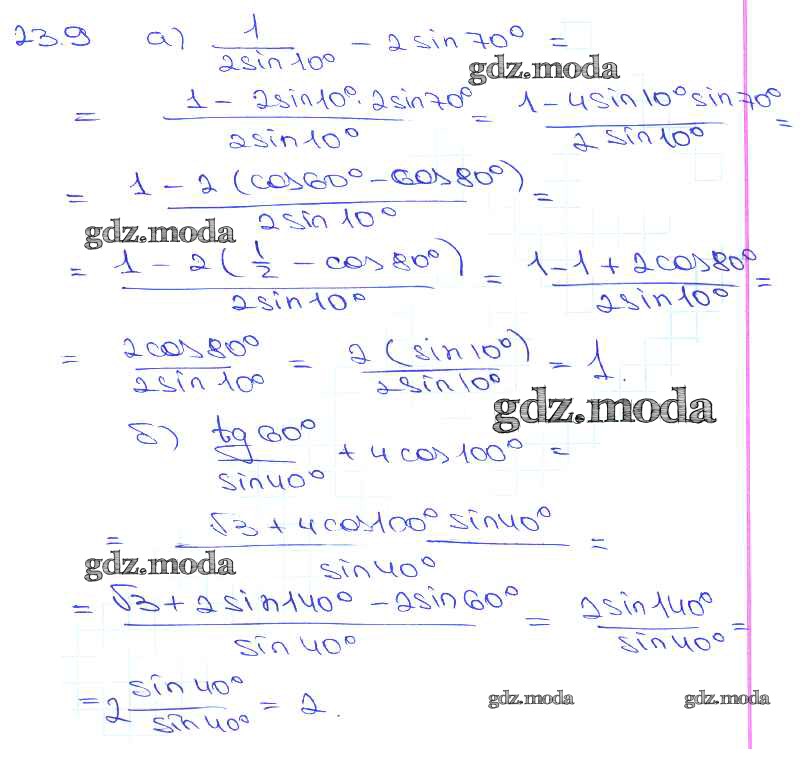 23.9 а) 1/(2sin10°) - 2sin70° =
gdz.moda
= (1 - 2sin10°·2sin70°)/(2sin10°) = (1 - 4sin10°sin70°)/(2sin10°) =
= (1 - 2(cos60° - cos80°))/(2sin10°) =
gdz.moda
= (1 - 2(1/2 - cos80°))/(2sin10°) = (1 - 1 + 2cos80°)/(2sin10°) =
= 2cos80°/(2sin10°) = 2(sin10°)/(2sin10°) = 1.
gdz.moda
б) tg60°/sin40° + 4cos100° =
= (√3 + 4cos100°sin40°)/sin40° =
gdz.moda
= (√3 + 2sin140° - 2sin60°)/sin40° = 2sin140°/sin40° =
= 2 sin40°/sin40° = 2.
gdz.moda gdz.moda